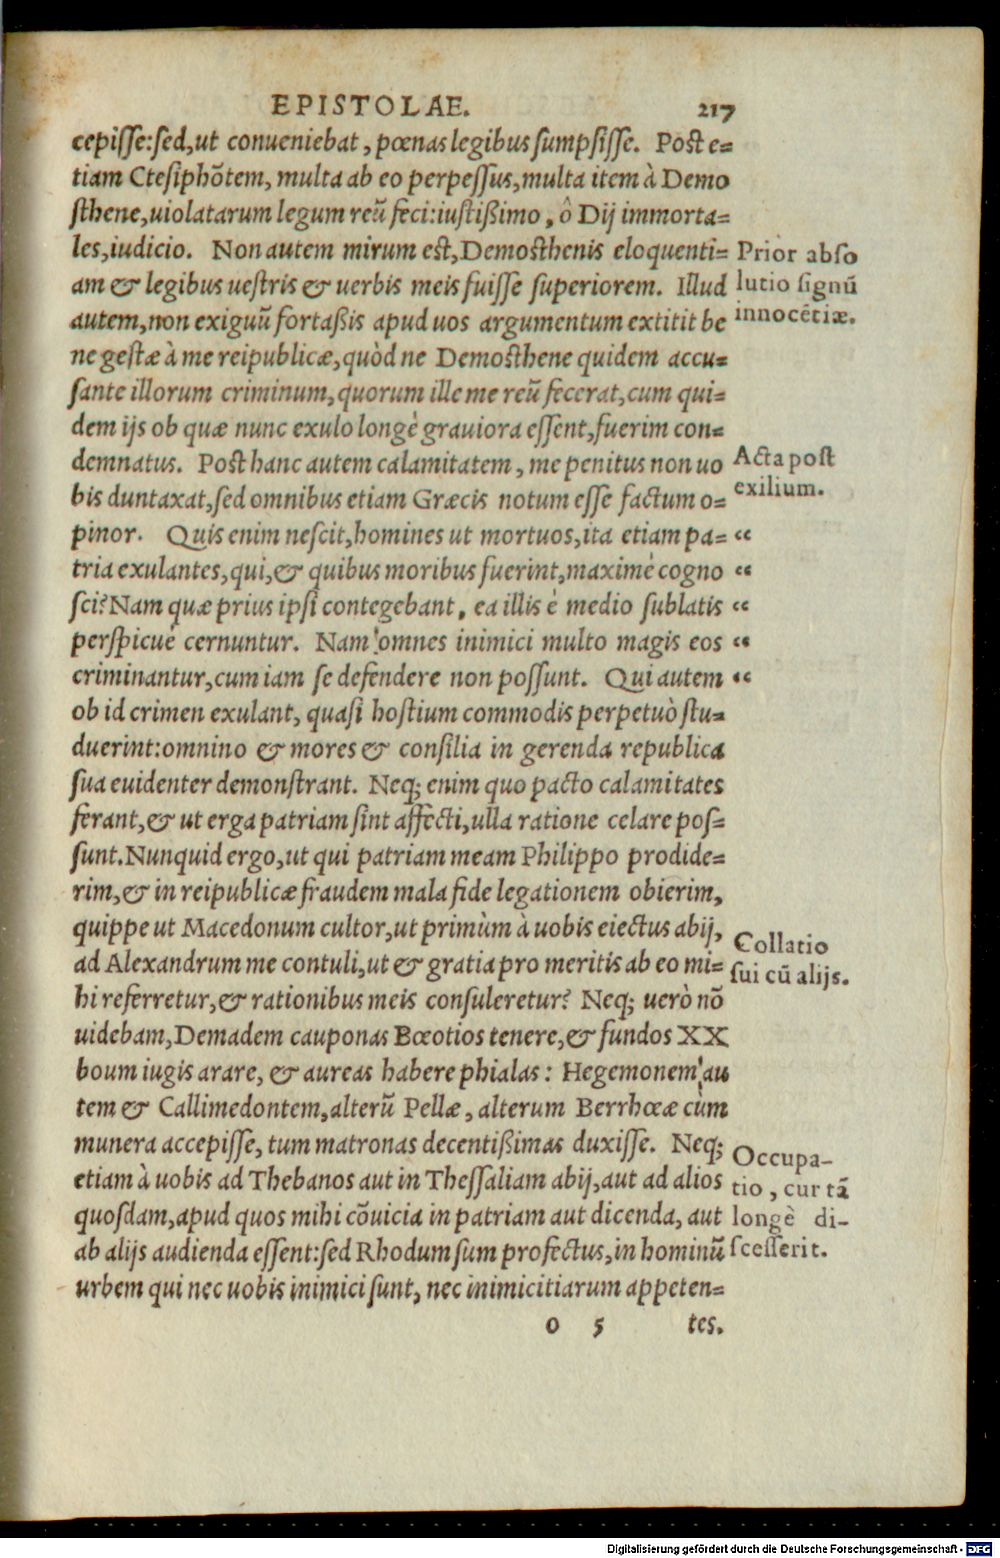 EPISTOLAE. 217
cepisse:sed,ut conueniebat, pœnas legibus sumpsisse. Post e=
tiam Ctesiphõtem, multa ab eo perpessus,multa item à Demo
sthene,uiolatarum legum reũ feci:iustißimo, ô Dij immorta=
les,iudicio. Non autem mirum est,Demosthenis eloquenti=
am & legibus uestris & uerbis meis fuisse superiorem. Illud
autem,non exiguũ fortaßis apud uos argumentum extitit be
ne gestæ à me reipublicæ,quòd ne Demosthene quidem accu=
sante illorum criminum,quorum ille me reũ fecerat,cum qui=
dem ijs ob quæ nunc exulo longè grauiora essent,fuerim con=
demnatus. Post hanc autem calamitatem, me penitus non uo
bis duntaxat,sed omnibus etiam Græcis notum esse factum o=
pinor. Quis enim nescit,homines ut mortuos,ita etiam pa= “
tria exulantes,qui,& quibus moribus fuerint,maximè cogno “
sci?Nam quæ prius ipsi contegebant, ea illis è medio sublatis “
perspicuè cernuntur. Nam omnes inimici multo magis eos “
criminantur,cum iam se defendere non possunt. Qui autem “
ob id crimen exulant, quasi hostium commodis perpetuò stu=
duerint:omnino & mores & consilia in gerenda republica
sua euidenter demonstrant. Neq; enim quo pacto calamitates
ferant,& ut erga patriam sint affecti,ulla ratione celare pos=
sunt.Nunquid ergo,ut qui patriam meam Philippo prodide=
rim,& in reipublicæ fraudem mala fide legationem obierim,
quippe ut Macedonum cultor,ut primùm à uobis eiectus abij,
ad Alexandrum me contuli,ut & gratia pro meritis ab eo mi=
hi referretur,& rationibus meis consuleretur? Neq; uerò nõ
uidebam,Demadem cauponas Bœotios tenere,& fundos XX
boum iugis arare, & aureas habere phialas: Hegemonem au
tem & Callimedontem,alterũ Pellæ, alterum Berrhœæ cùm
munera accepisse, tum matronas decentißimas duxisse. Neq;
etiam à uobis ad Thebanos aut in Thessaliam abij,aut ad alios
quosdam,apud quos mihi cõuicia in patriam aut dicenda, aut
ab alijs audienda essent:sed Rhodum sum profectus,in hominũ
urbem qui nec uobis inimici sunt, nec inimicitiarum appeten=
o 5 tes.
Prior abso
lutio signũ
innocẽtiæ.
Acta post
exilium.
Collatio
sui cũ alijs.
Occupa-
tio, cur tã
longè di-
scesserit.
Digitalisierung gefördert durch die Deutsche Forschungsgemeinschaft - DFG